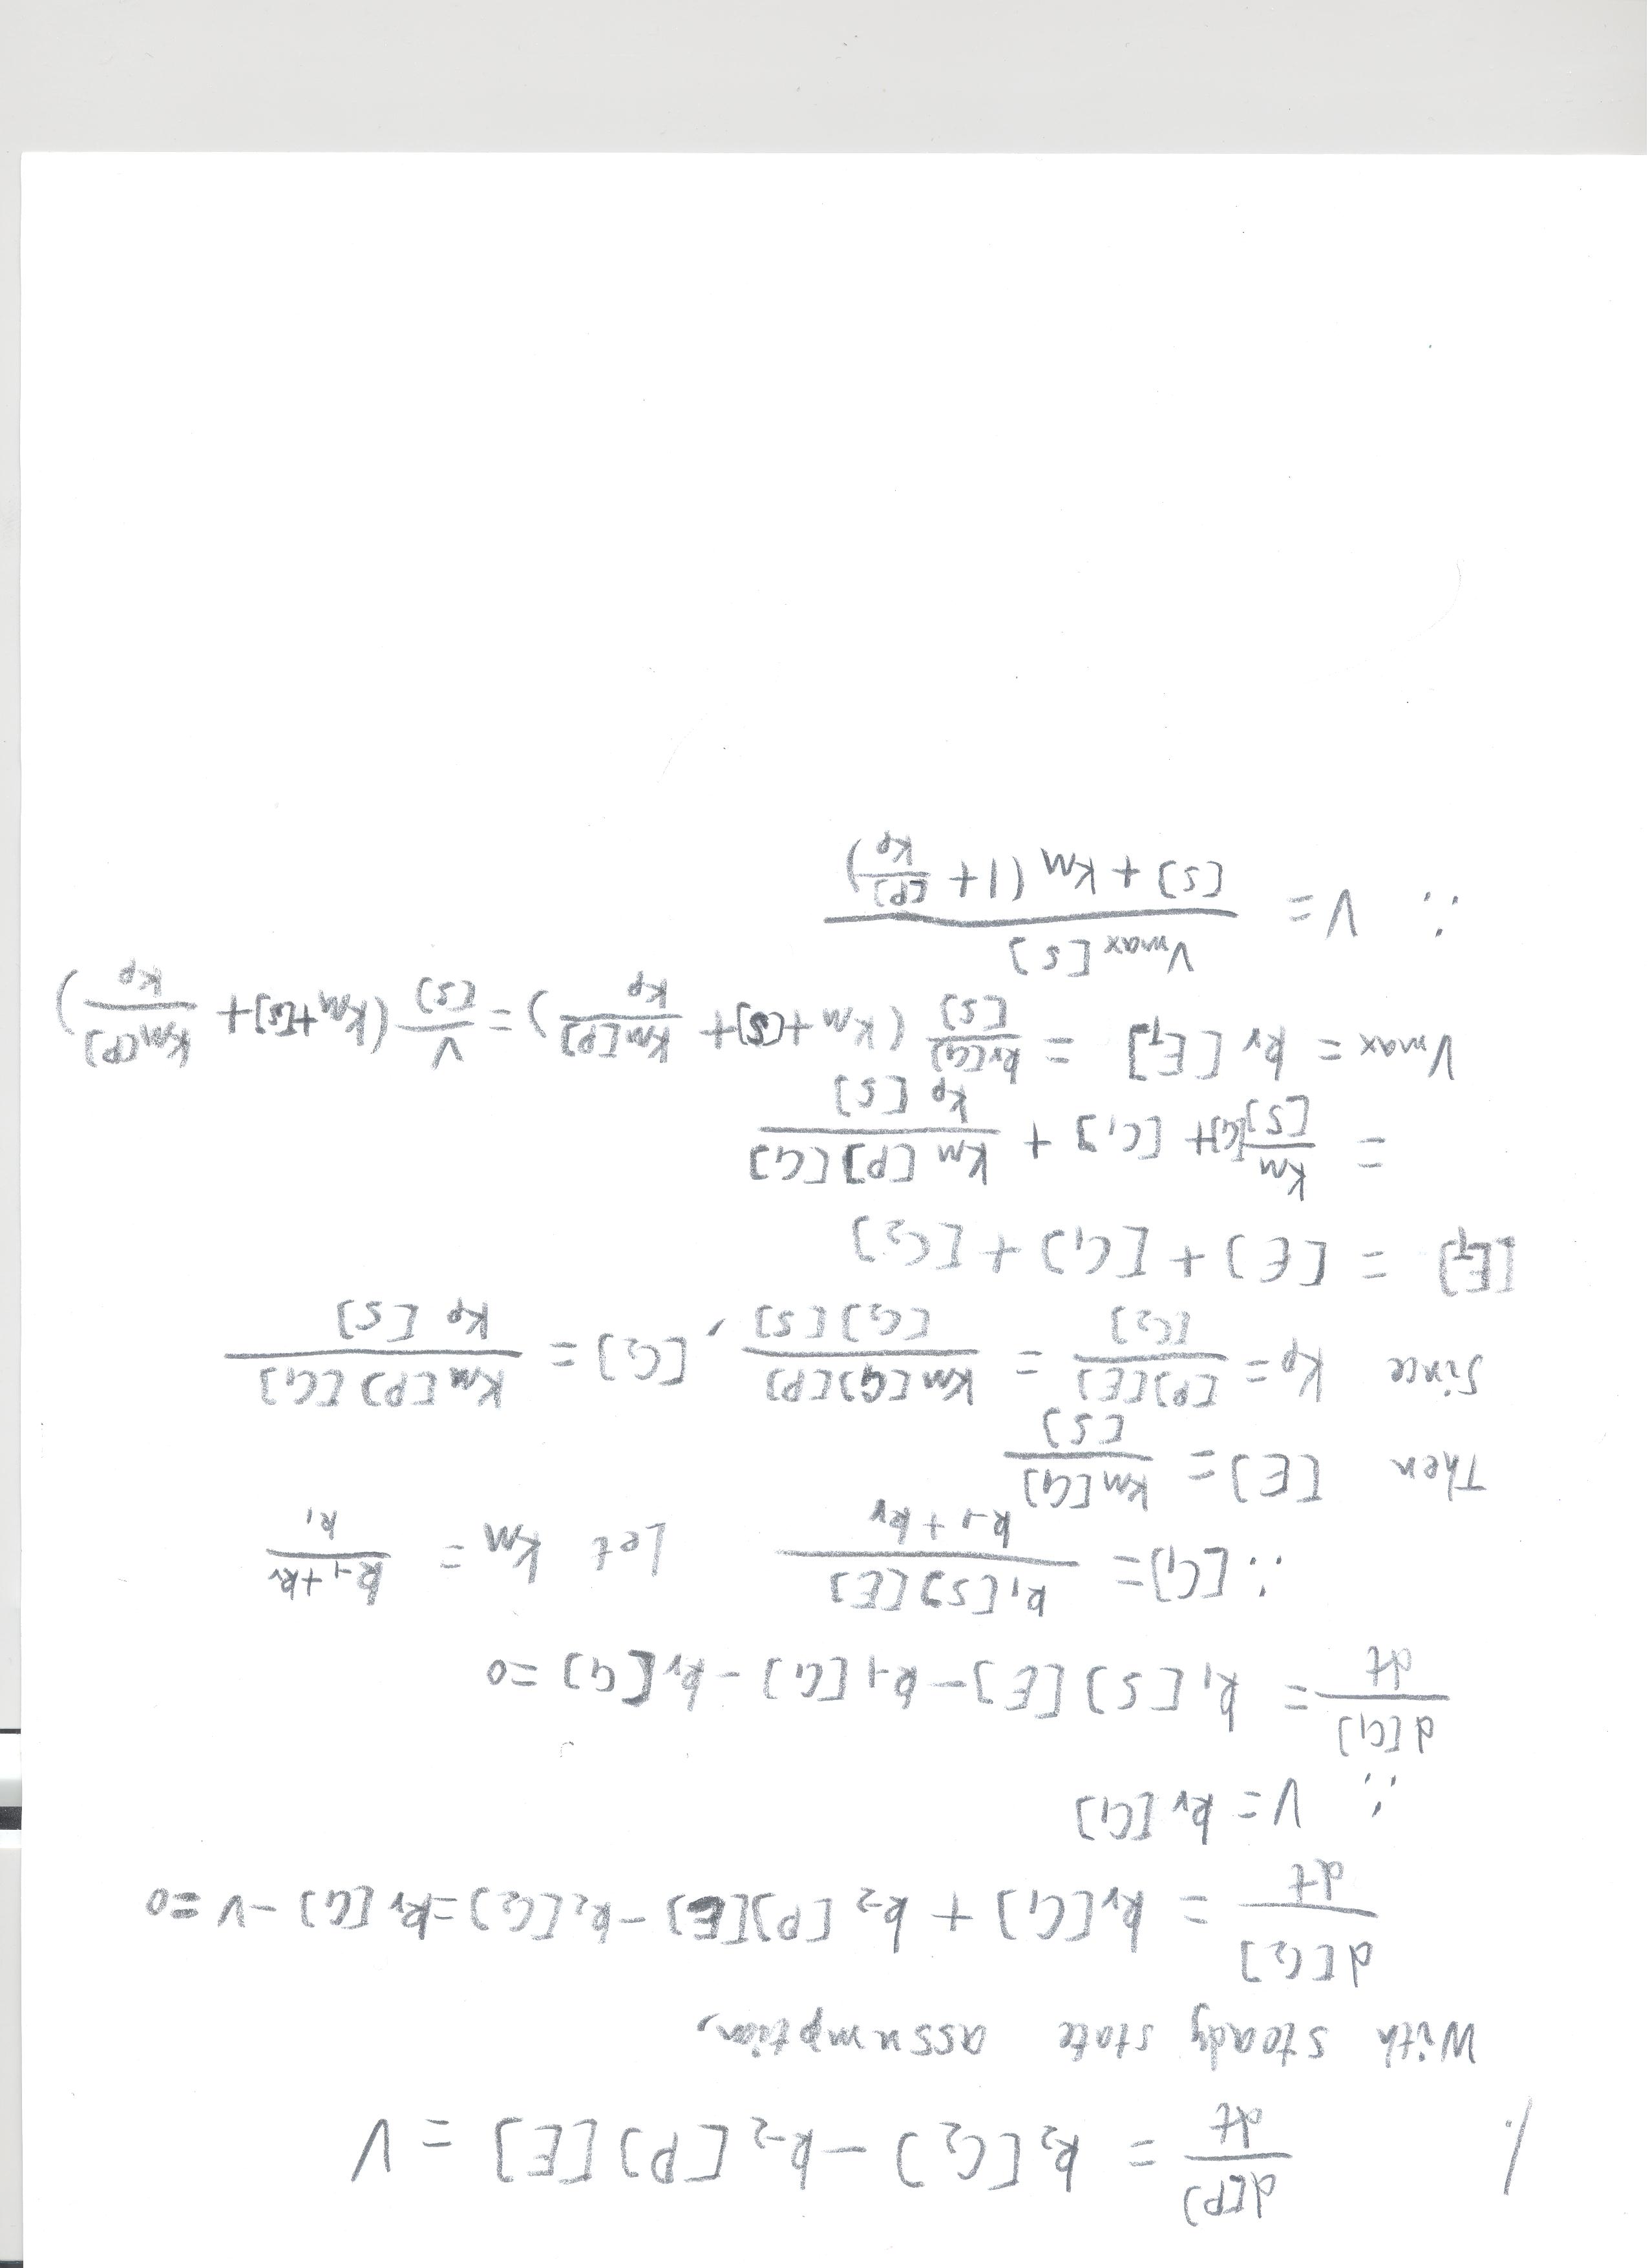 1. d[P]/dt = k₂[C₂] − k₋₂[P][E] = V
With steady state assumption,
d[C₂]/dt = kᵣ[C₁] + k₋₂[P][E] − k₂[C₂] = kᵣ[C₁] − V = 0
∴ V = kᵣ[C₁]
d[C₁]/dt = k₁[S][E] − k₋₁[C₁] − kᵣ[C₁] = 0
∴ [C₁] = k₁[S][E]/(k₋₁ + kᵣ) Let Km = (k₋₁ + kᵣ)/k₁
Then [E] = Km[C₁]/[S]
Since Kp = [P][E]/[C₂] = Km[C₁][P]/([C₂][S]), [C₂] = Km[P][C₁]/(Kp[S])
[E_T] = [E] + [C₁] + [C₂]
= Km/[S] [C₁] + [C₁] + Km[P][C₁]/(Kp[S])
Vmax = kᵣ[E_T] = kᵣ[C₁]/[S] (Km + [S] + Km[P]/Kp) = V/[S] (Km + [S] + Km[P]/Kp)
∴ V = Vmax[S]/([S] + Km(1 + [P]/Kp))